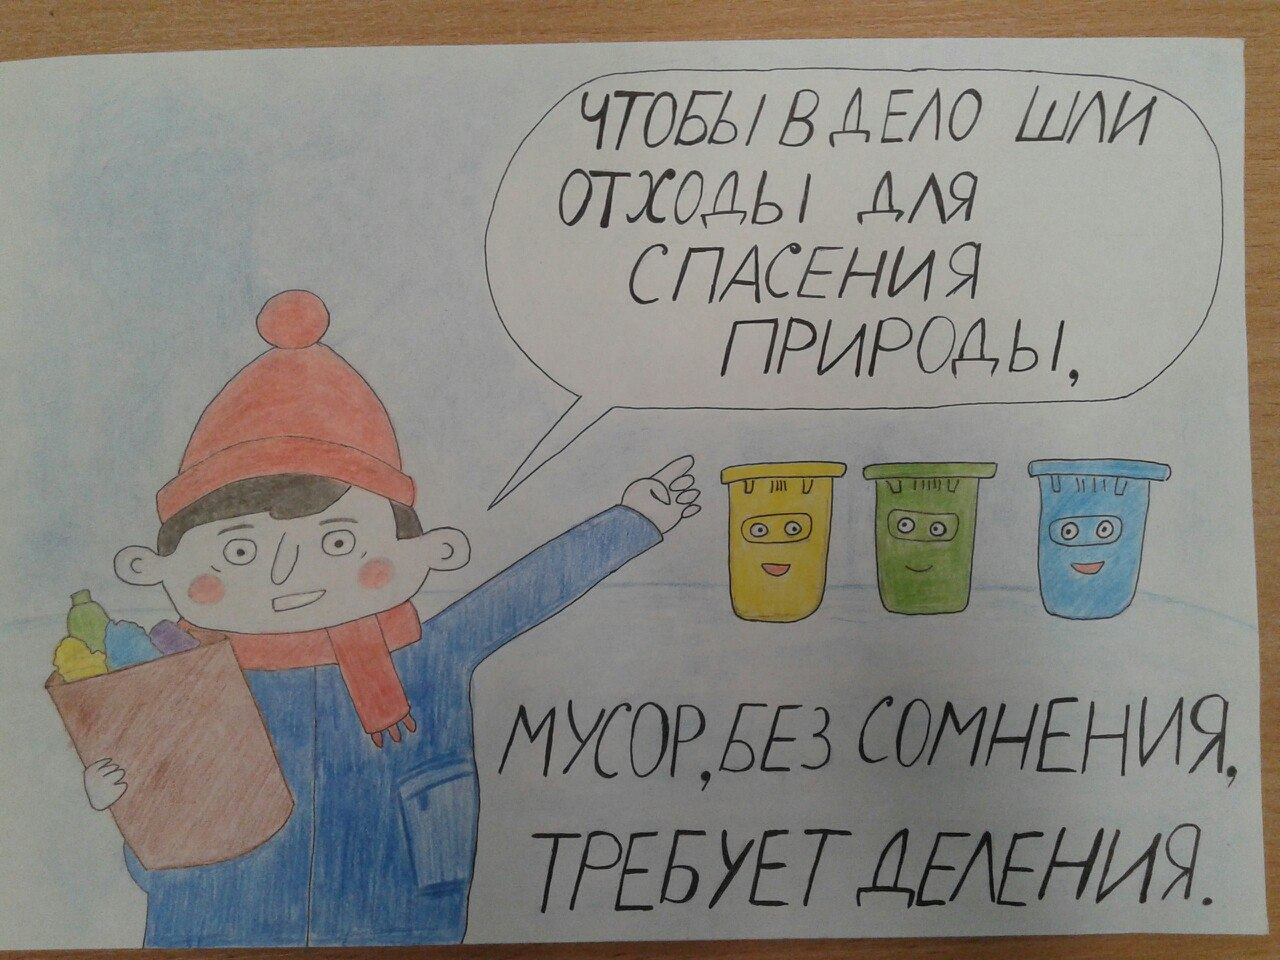 ЧТОБЫ В ДЕЛО ШЛИ
ОТХОДЫ ДЛЯ
СПАСЕНИЯ
ПРИРОДЫ,
МУСОР, БЕЗ СОМНЕНИЯ,
ТРЕБУЕТ ДЕЛЕНИЯ.